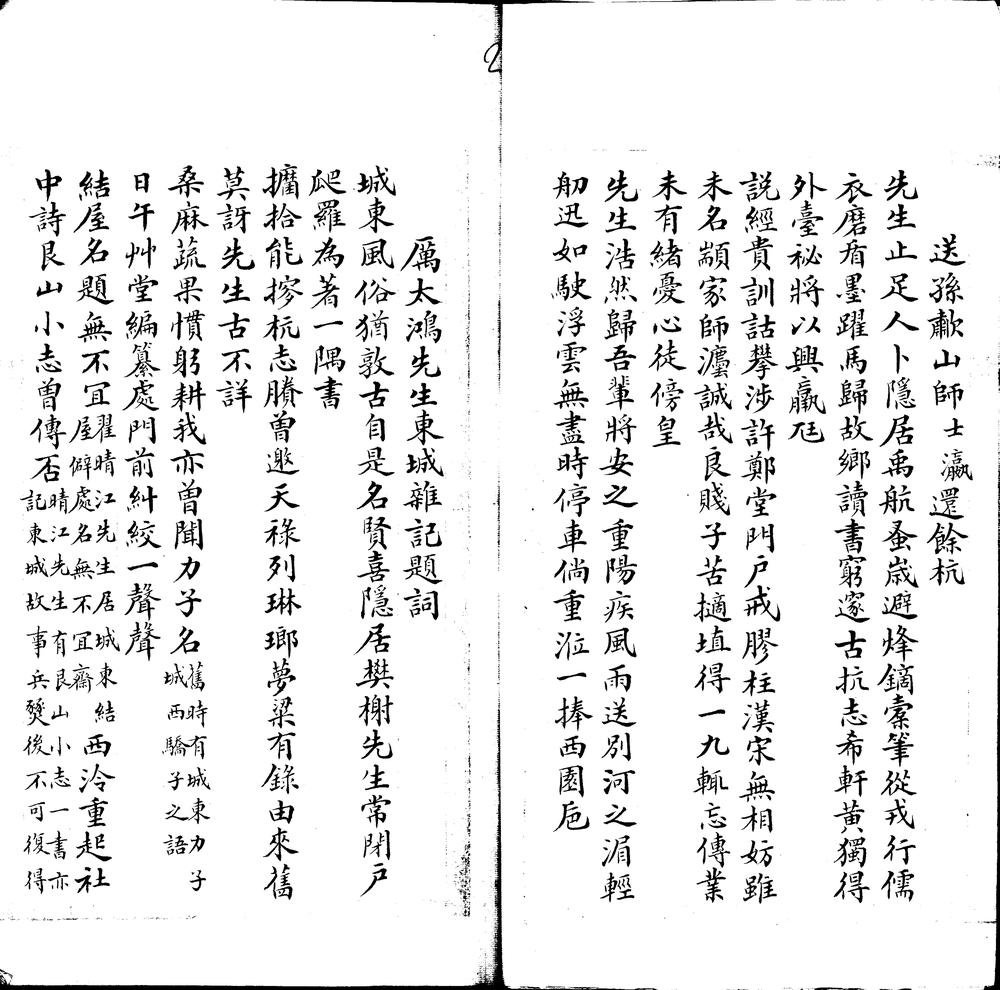 送孫歗山師士瀛還餘杭
先生止足人卜隱居禹航蚤嵗避烽鏑橐筆從戎行儒
衣磨盾墨躍馬歸故鄉讀書窮邃古抗志希軒黃獨得
外臺祕將以興羸尫
説經貴訓詁攀涉許鄭堂門戶戒膠柱漢宋無相妨雖
未名顓家師灋誠哉良賤子苦擿埴得一九輒忘傳業
未有緒憂心徒傍皇
先生浩然歸吾輩將安之重陽疾風雨送別河之湄輕
舠迅如駛浮雲無盡時停車倘重涖一捧西園卮
厲太鴻先生東城雜記題詞
城東風俗猶敦古自是名賢喜隱居樊榭先生常閉戶
爬羅為著一隅書
擴拾能摎杭志賸曾邀天祿列琳瑯夢粱有錄由來舊
莫訝先生古不詳
桑麻蔬果慣躬耕我亦曾聞力子名舊時有城東力子城西驕子之語
日午艸堂編纂處門前糾絞一聲聲
結屋名題無不宜翟晴江先生居城東結屋僻處名無不宜齋西泠重起社
中詩艮山小志曾傳否晴江先生有艮山小志一書亦記東城故事兵燹後不可復得